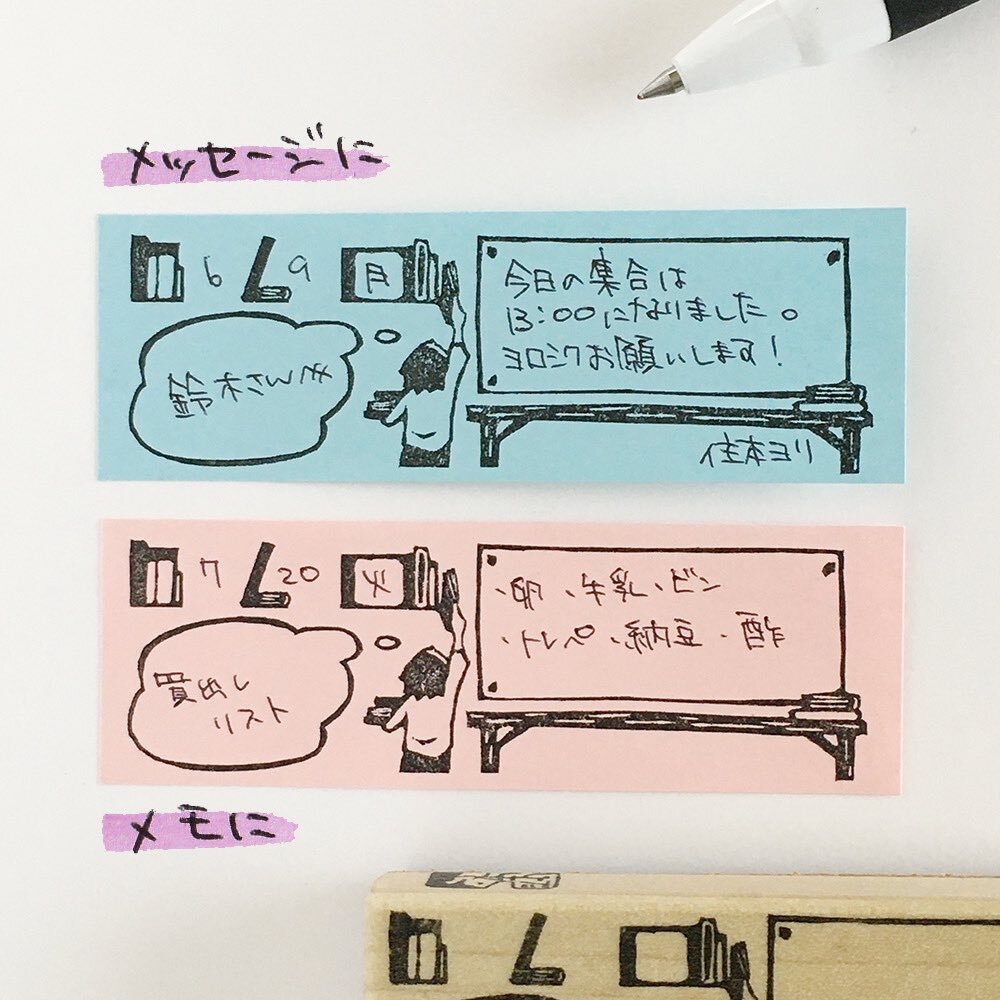 メッセージに
6 9 月
鈴木さんへ
今日の集合は
13:00になりました。
ヨロシクお願いします！
住本ヨリ
7 20 火
買出し
リスト
・卵・牛乳・ビン
・トレペ・納豆・酢
メモに